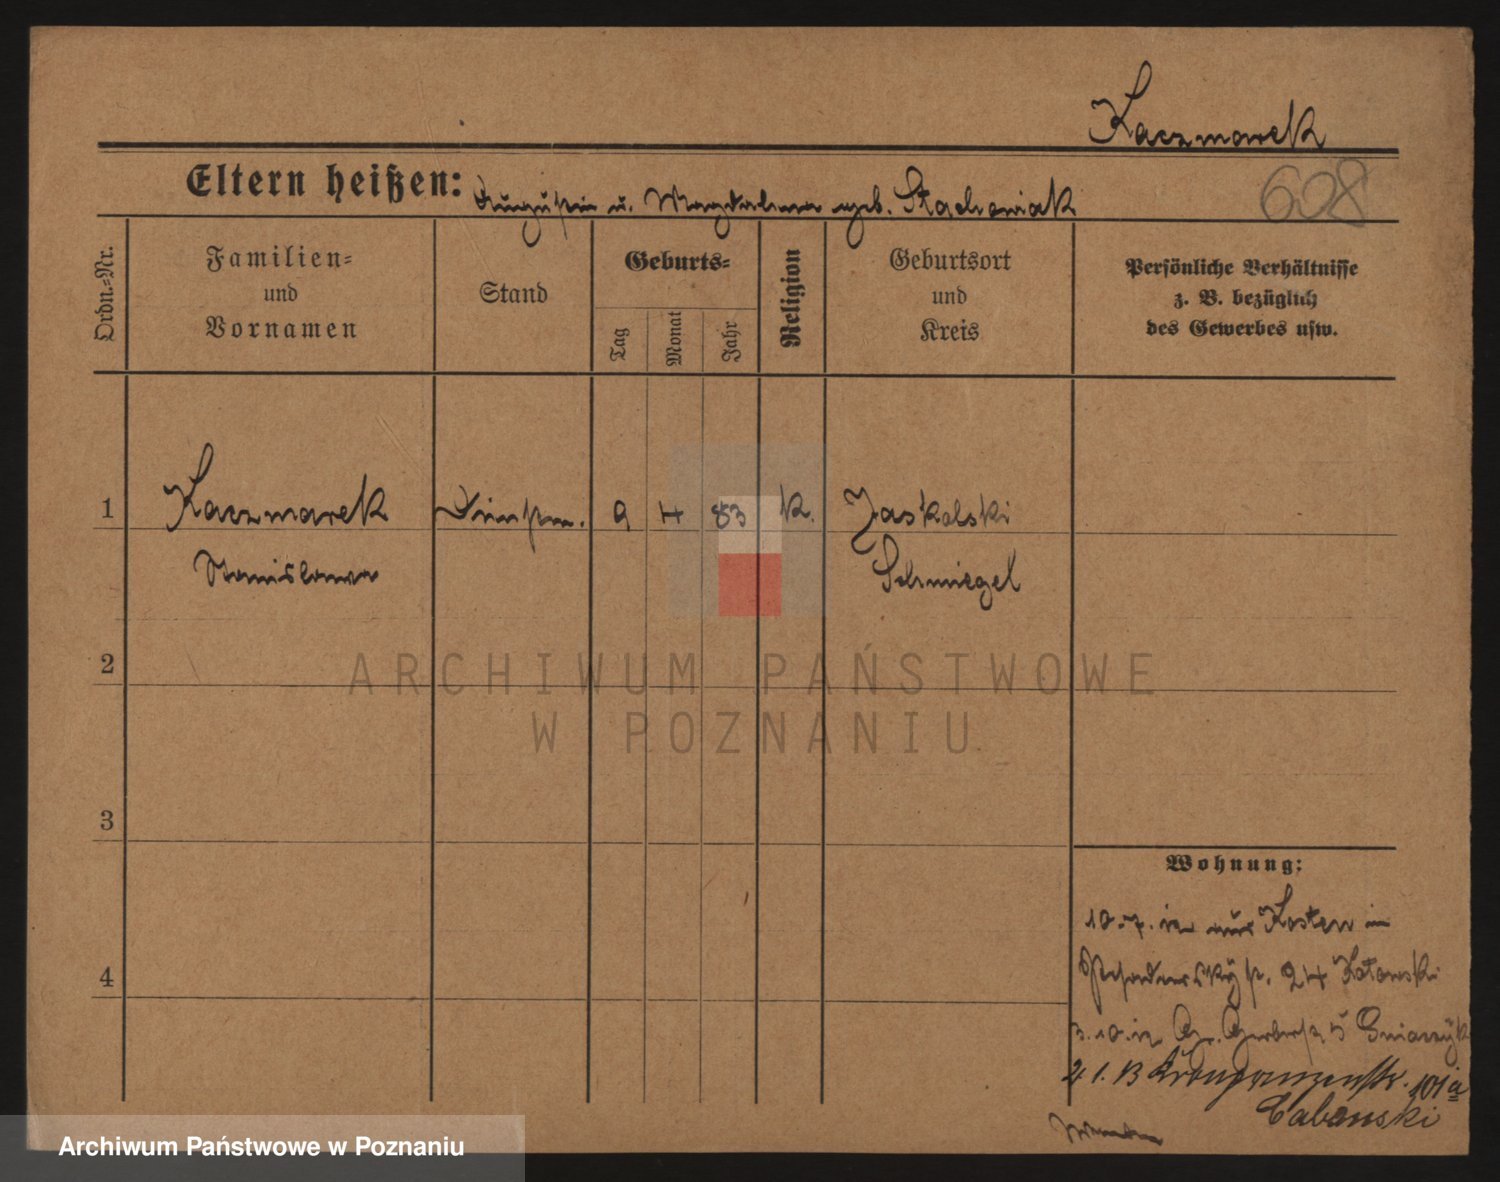 Kaczmarek
Eltern heißen: Augustin u. Magdalena geb. Stachowiak
608
Ordn.=Nr.
Familien=
und
Vornamen
Stand
Geburts=
Tag
Monat
Jahr
Religion
Geburtsort
und
Kreis
Persönliche Verhältnisse
z. B. bezüglich
des Gewerbes usw.
1 Kaczmarek 9 4 83 K. Jaskolski
Stanislawa Schmiegel
2
3
4
Wohnung:
10.7.12 aus Kosten in
24 Kotowski
3.10.12 Gr. Gerberstr. 5
2 1. 13 Kronprinzenstr. 101a
Cabanski
ARCHIWUM PAŃSTWOWE
W POZNANIU
Archiwum Państwowe w Poznaniu